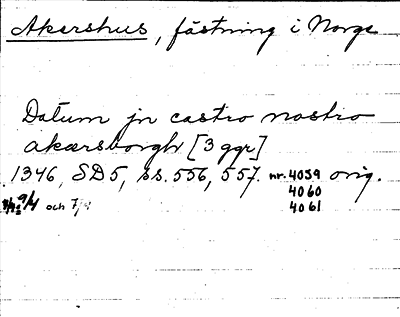 Akershus, fästning i Norge
Datum jn castro nostro
akærsborgh [3 ggr]
1346, SD5, ss. 556, 557. nr. 4059 orig.
4060
9/4 och 7/4 4061